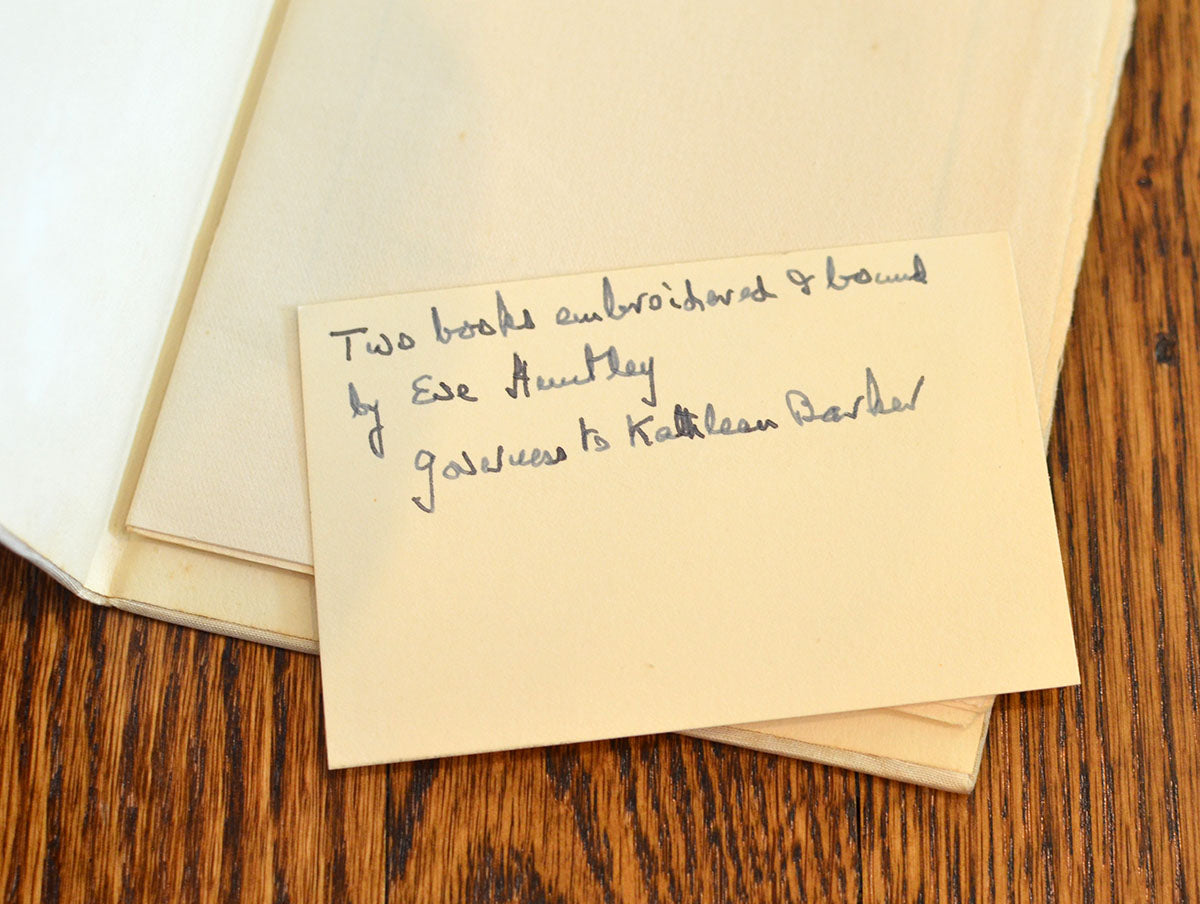 Two books embroidered & bound
by Eve Huntley
governess to Kathleen Barker